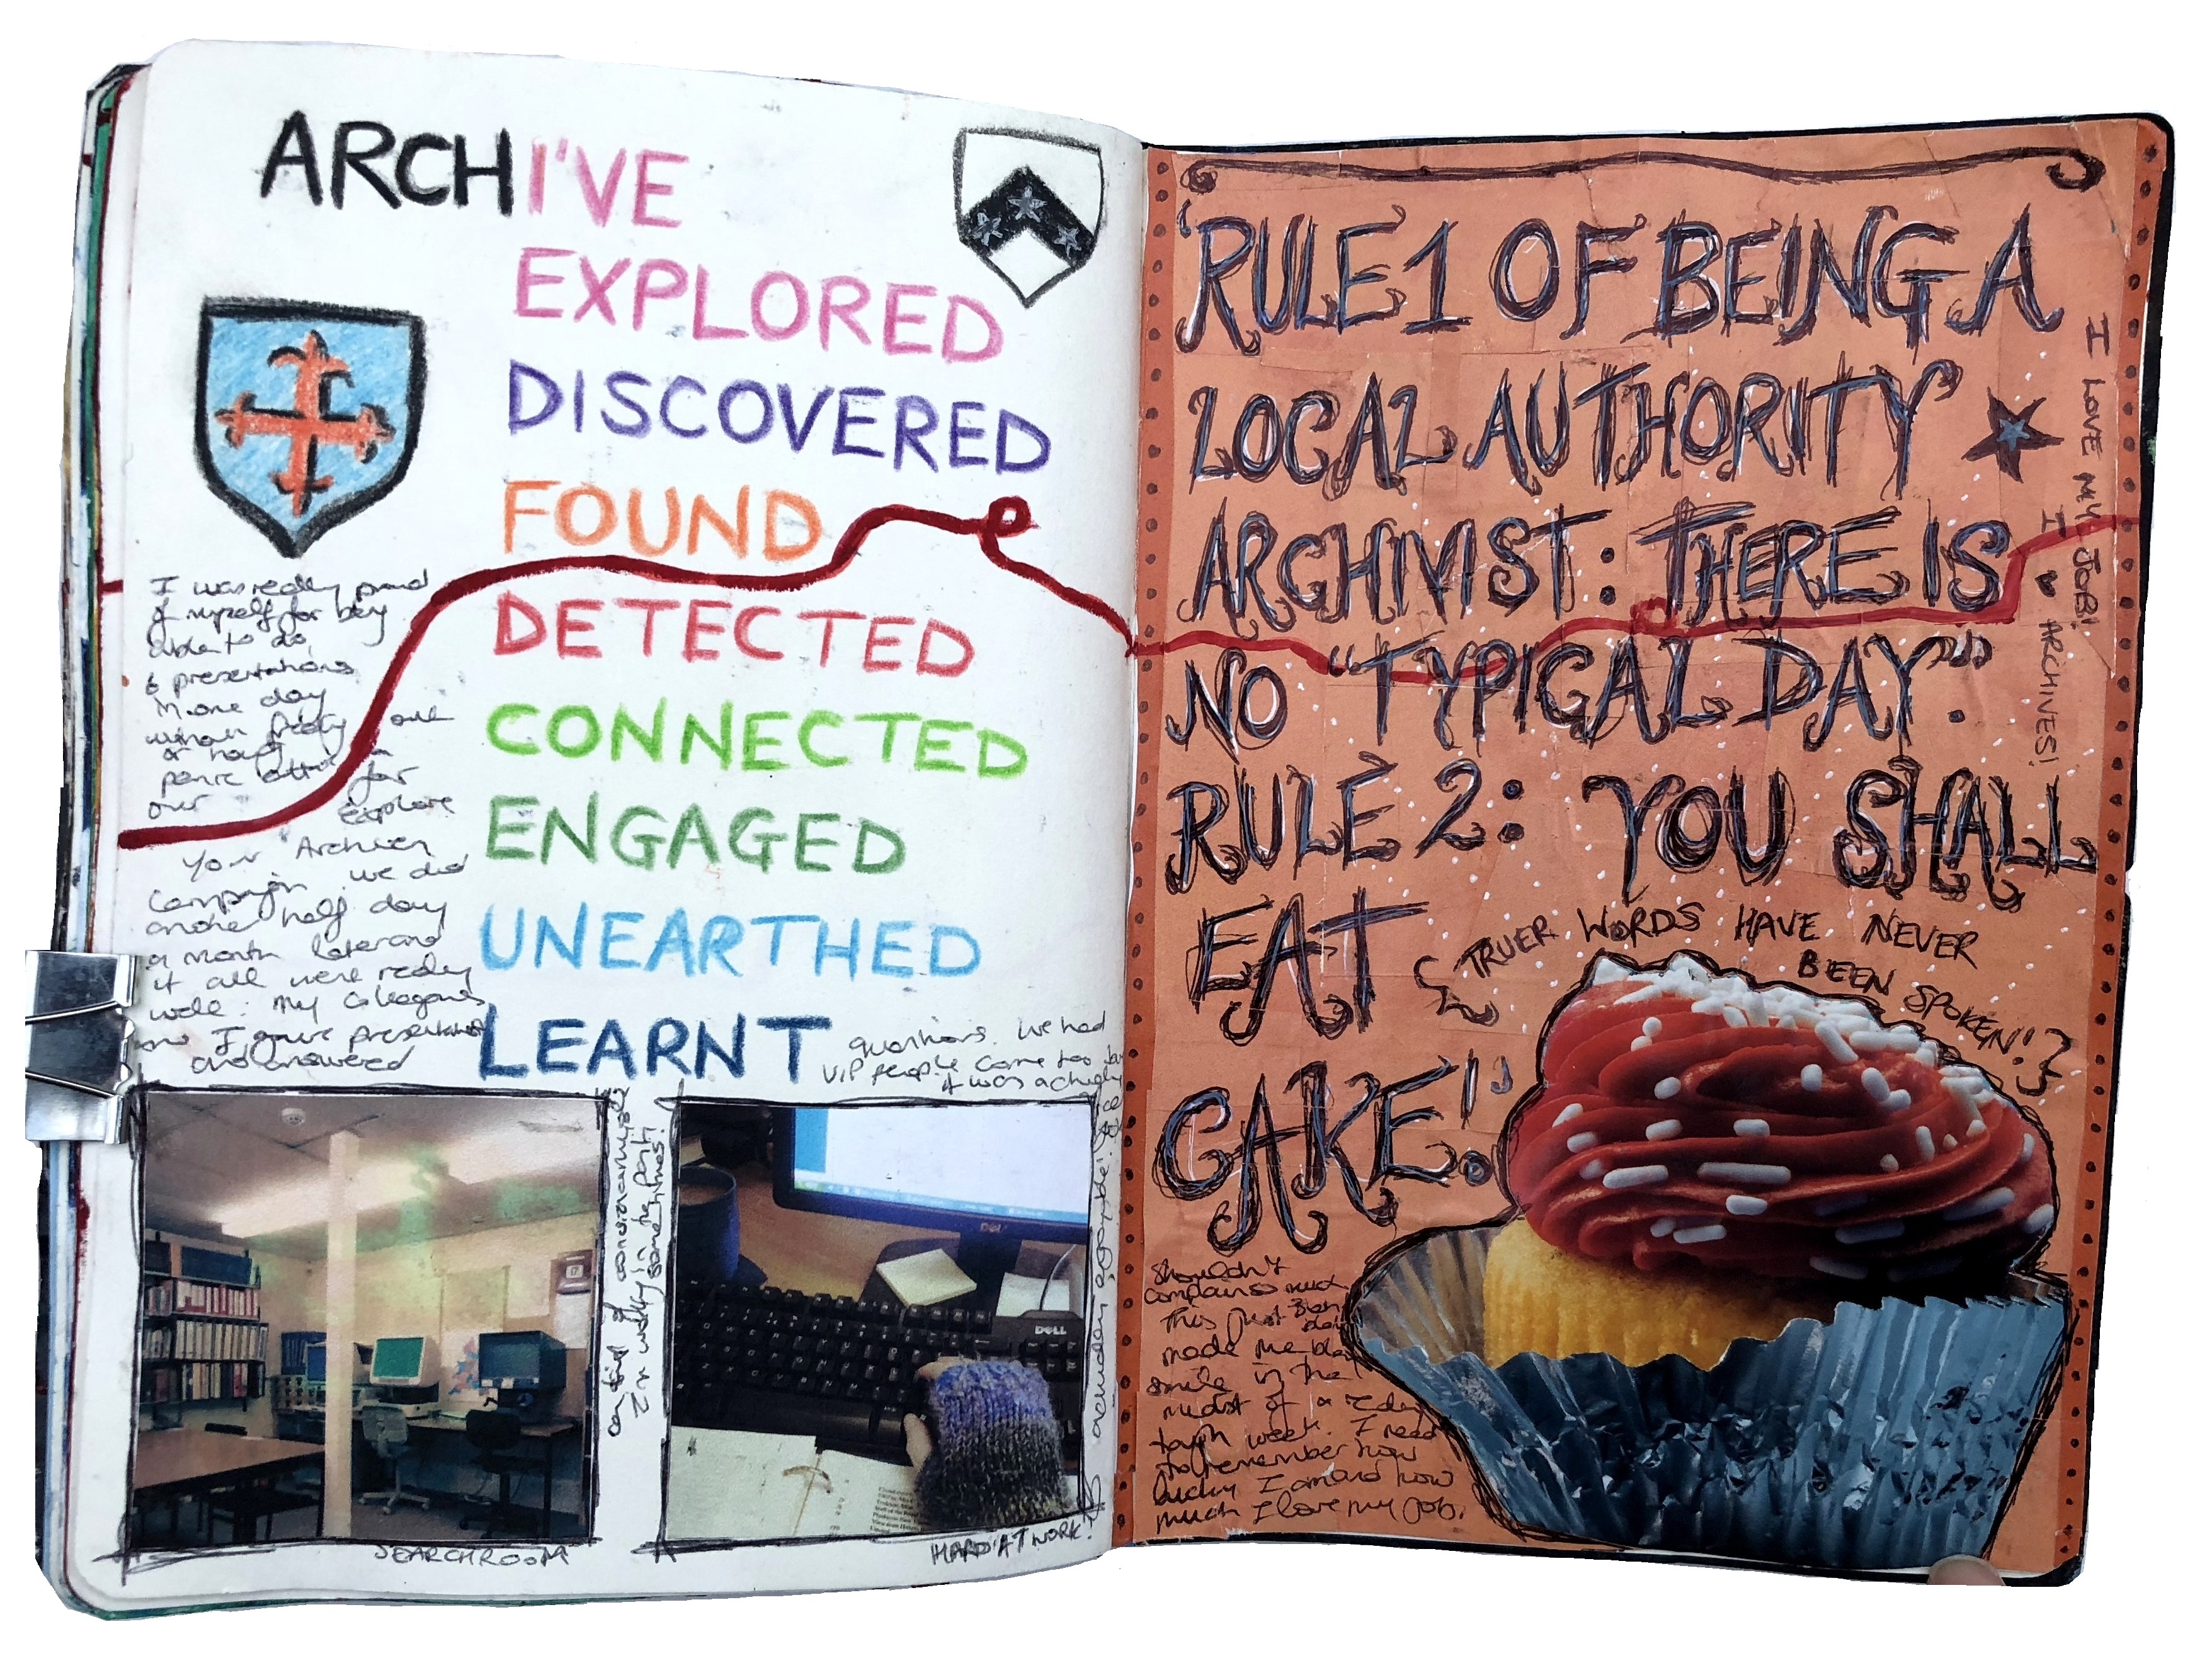 ARCHI'VE
EXPLORED
DISCOVERED
FOUND
DETECTED
CONNECTED
ENGAGED
UNEARTHED
LEARNT
I was really proud
of myself for being
able to do
6 presentations
in one day
without freaky out
or having a
panic attack for
our explore
Your Archives
Campaign we did
another half day
a month later and
it all went really
well. My colleagues
and I gave presentations
and answered
questions. We had
VIP people come too
it was actually
SEARCHROOM
HARD AT WORK!
'RULE 1 OF BEING A
LOCAL AUTHORITY
ARCHIVIST: THERE IS
NO "TYPICAL DAY".
RULE 2: YOU SHALL
EAT
CAKE!'
{TRUER WORDS HAVE NEVER
BEEN SPOKEN!}
I LOVE MY JOB!
I ♥ ARCHIVES!
Shouldn't
complain so much
This just
made me
smile in the
midst of a
tough week. I need
to remember how
lucky I am and how
much I love my job.
DELL
DELL
17